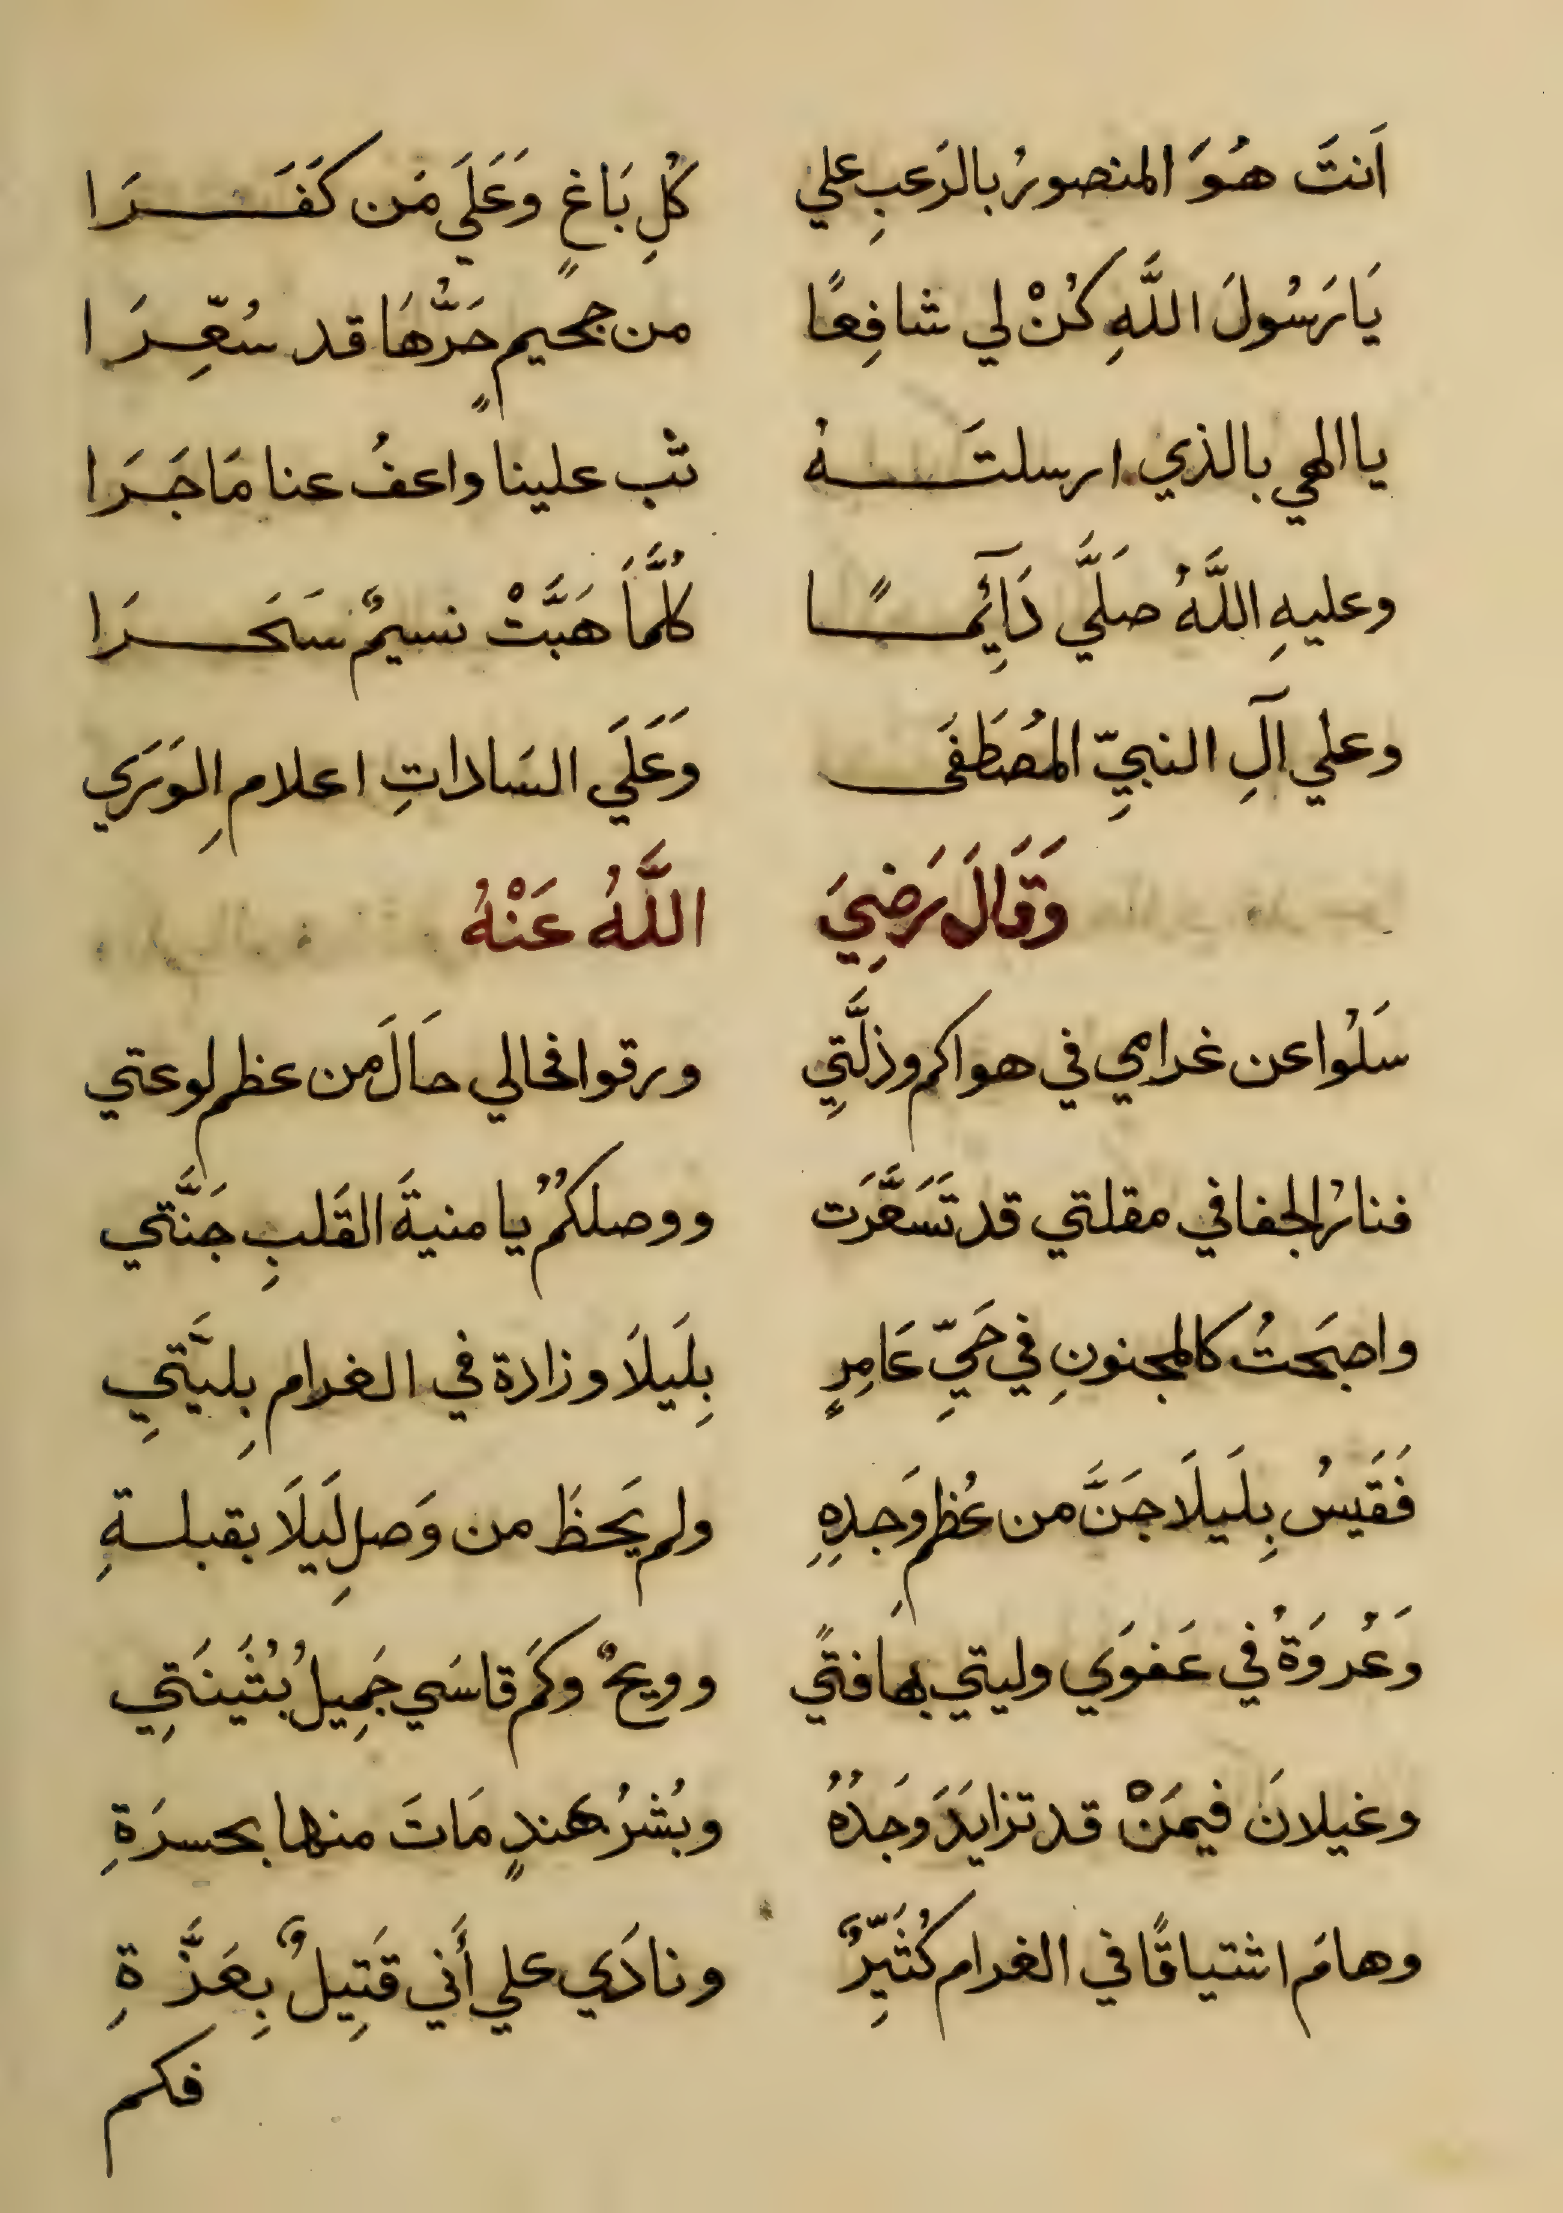 اَنتَ هُوَ المنصورُ بالرَعبِ علي كُلِ بَاغٍ وَعَلَي مَن كَفَـــرَا
يَا رَسُولَ اللَّهِ كُنْ لي شافِعًا من جحيمٍ حَرُّهَا قد سُعِّرَا
يا الهي بالذي ارسلتَـــهُ تُب علينا واعفُ عنا مَا جَرَا
وعليهِ اللَّهُ صلَّي دَآئِمًـــا كُلَّمَا هَبَّتْ نسيمٌ سَحَـــرَا
وعلي آلِ النبيِّ المُصَطَفَى وَعَلَي السَاداتِ اعلامِ الوَرَي
وَقَالَ رَضِيَ اللَّهُ عَنْهُ
سَلُوا عن غرامي في هواكم وذلَّتِي ورقوا فحالي حَالَ من عظم لوعتي
فنارُ الجفا في مقلتي قد تَسَعَّرَت ووصلكمُ يا منيةَ القَلبِ جَنَّتي
واصبَحتُ كالمجنونِ في حَيِّ عَامِرٍ بِلَيلَا وزادة في الغرامِ بِليَّتِي
فَقَيسُ بِلَيلَا جَنَّ من عُظمِ وَجدِهِ ولم يَحظَ من وَصلِ لَيلَا بقبلـةِ
وَعُروَةُ في عَفوَي وليتي بهَا فتًي وويحٌ وكَم قاسَي جَمِيلُ بُثَينَتِي
وغيلانَ فيمَنْ قد تزايَدَ وَجدُهُ وبُشرُ هندٍ مَاتَ منها بحسرَةِ
وهامَ اشتياقًا في الغرام كُثَيِّرٌ ونادَي علي أَني قَتِيلٌ بِعَزَّةِ
فكم